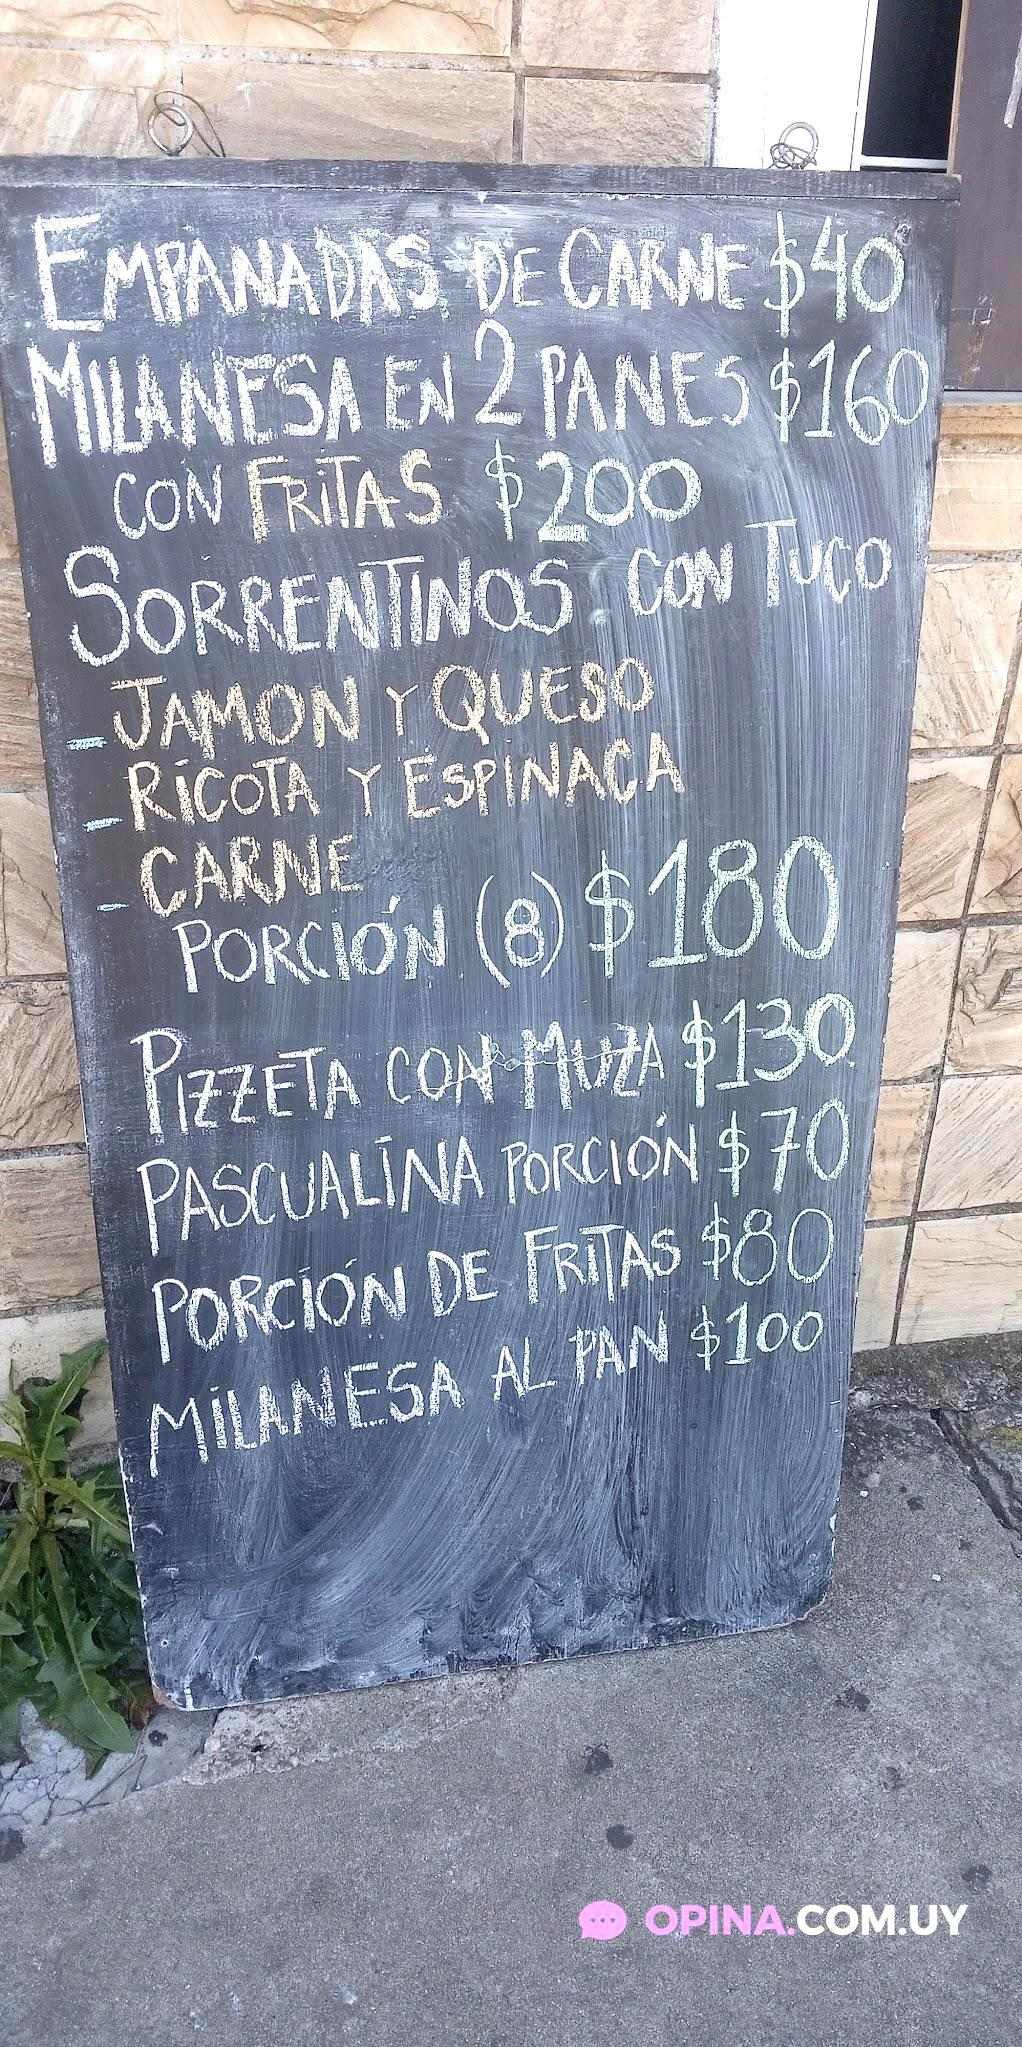 EMPANADAS DE CARNE $40
MILANESA EN 2 PANES $160
CON FRITAS $200
SORRENTINOS CON TUCO
- JAMON Y QUESO
- RICOTA Y ESPINACA
- CARNE
PORCIÓN (8) $180
PIZZETA CON MUZA $130
PASCUALINA PORCIÓN $70
PORCIÓN DE FRITAS $80
MILANESA AL PAN $100
OPINA.COM.UY